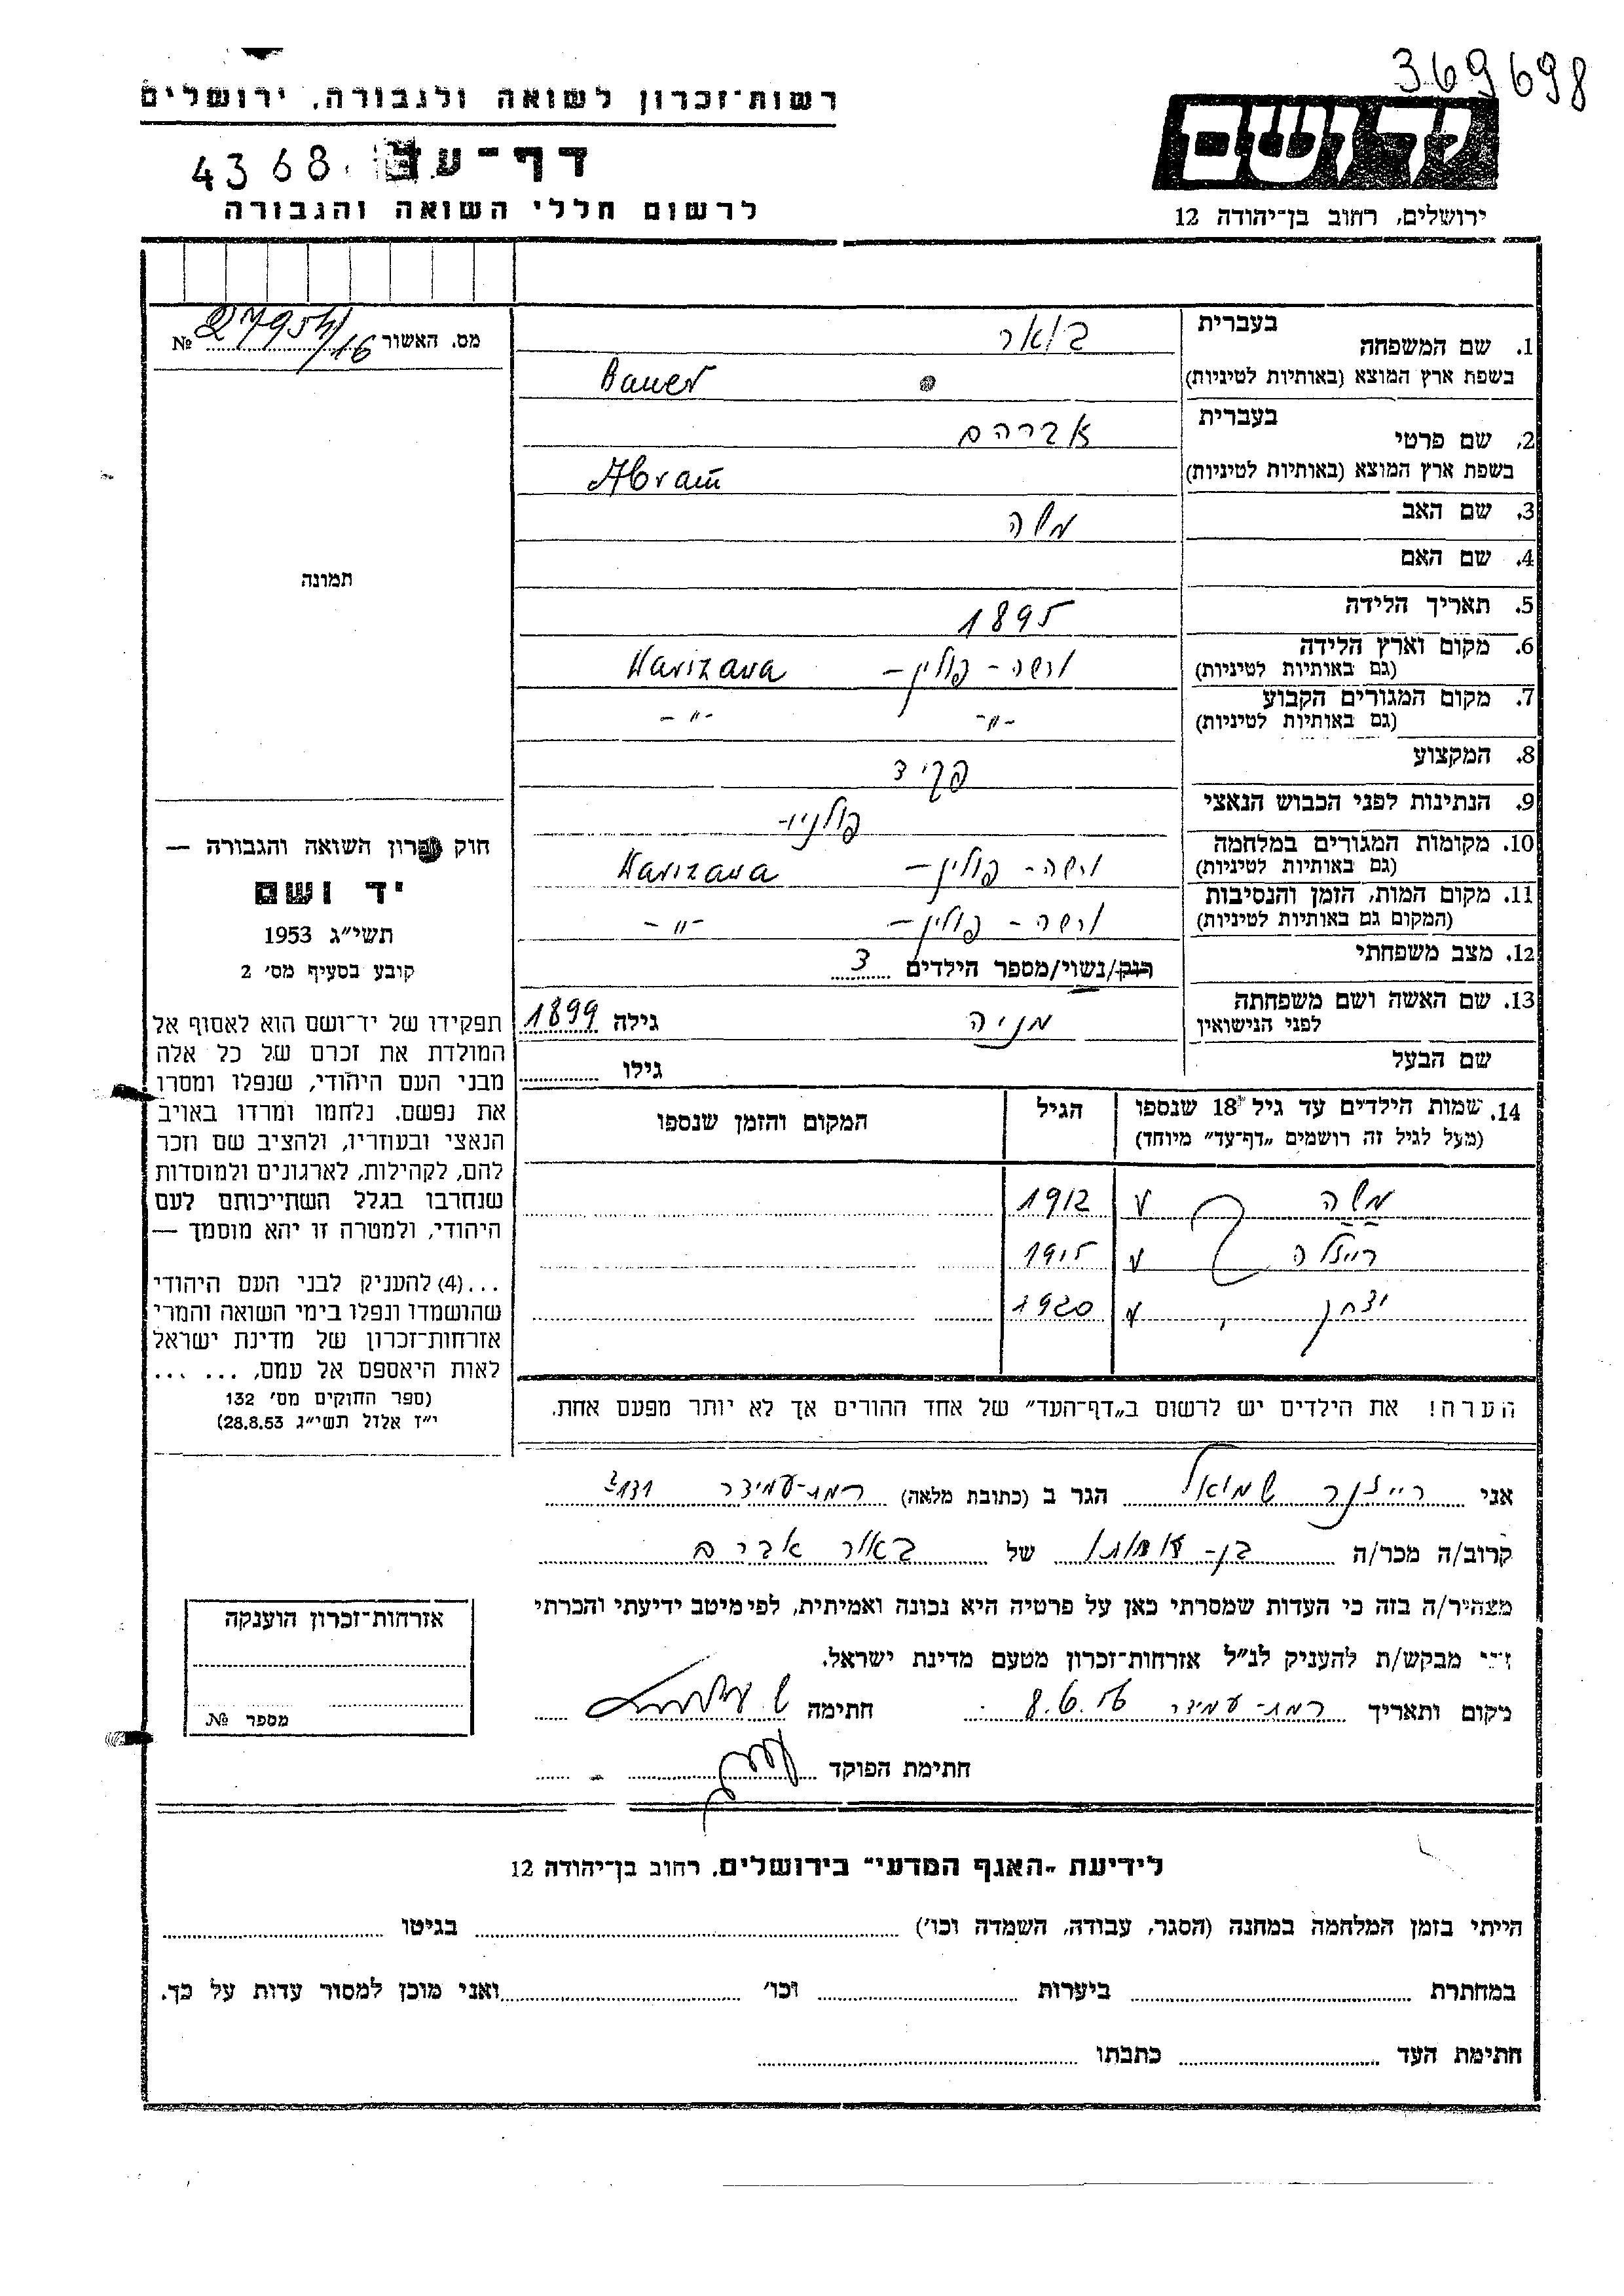 369698
רשות־זכרון לשואה ולגבורה, ירושלים
דף־עד 4368
לרשום חללי השואה והגבורה
יד ושם
ירושלים, רחוב בן־יהודה 12
מס. האשור №
1. שם המשפחה בעברית באואר
בשפת ארץ המוצא (באותיות לטיניות) Bauer
2. שם פרטי בעברית אברהם
בשפת ארץ המוצא (באותיות לטיניות) Abram
3. שם האב משה
4. שם האם
5. תאריך הלידה 1895
6. מקום וארץ הלידה ורשה - פולין - Warszawa
(גם באותיות לטיניות)
7. מקום המגורים הקבוע -"- -"-
(גם באותיות לטיניות)
8. המקצוע פקיד
9. הנתינות לפני הכבוש הנאצי
10. מקומות המגורים במלחמה ורשה - פולין - Warszawa
(גם באותיות לטיניות)
11. מקום המות, הזמן והנסיבות ורשה - פולין - -"-
(המקום גם באותיות לטיניות)
12. מצב משפחתי רווק/נשוי/מספר הילדים 3
13. שם האשה ושם משפחתה מניה גילה 1899
לפני הנישואין
שם הבעל גילו
14. שמות הילדים עד גיל 18 שנספו הגיל המקום והזמן שנספו
(מעל לגיל זה רושמים „דף־עד” מיוחד)
משה 1912
רייזלה 1915
יצחק 1920
הערה! את הילדים יש לרשום ב„דף־העד” של אחד ההורים אך לא יותר מפעם אחת.
תמונה
חוק זכרון השואה והגבורה —
יד ושם
תשי״ג 1953
קובע בסעיף מס׳ 2
תפקידו של יד־ושם הוא לאסוף אל
המולדת את זכרם של כל אלה
מבני העם היהודי, שנפלו ומסרו
את נפשם. נלחמו ומרדו באויב
הנאצי ובעוזריו, ולהציב שם וזכר
להם, לקהילות, לארגונים ולמוסדות
שנחרבו בגלל השתייכותם לעם
היהודי, ולמטרה זו יהא מוסמך —
...(4) להעניק לבני העם היהודי
שהושמדו ונפלו בימי השואה והמרי
אזרחות־זכרון של מדינת ישראל
לאות היאספם אל עמם, ... ...
(ספר החוקים מס׳ 132
י״ז אלול תשי״ג 28.8.53)
אני רייזנר שמואל הגר ב (כתובת מלאה) רמת-עמידר
קרוב/ה מכר/ה בן- של באור
מצהיר/ה בזה כי העדות שמסרתי כאן על פרטיה היא נכונה ואמיתית, לפי מיטב ידיעתי והכרתי
אני מבקש/ת להעניק לנ״ל אזרחות־זכרון מטעם מדינת ישראל.
מקום ותאריך רמת-עמידר 8.6.56 חתימה
חתימת הפוקד
אזרחות־זכרון הוענקה
מספר №
לידיעת „האגף המדעי” בירושלים, רחוב בן־יהודה 12
הייתי בזמן המלחמה במחנה (הסגר, עבודה, השמדה וכו׳) בגיטו
במחתרת ביערות וכו׳ ואני מוכן למסור עדות על כך.
חתימת העד כתבתו